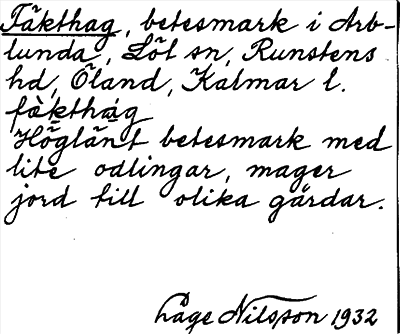 Fäkthag, betesmark i Arb-
lunda, Löt sn, Runstens
hd, Öland, Kalmar l.
fäkthág
Höglänt betesmark med
lite odlingar, mager
jord till olika gårdar.
Åge Nilsson 1932